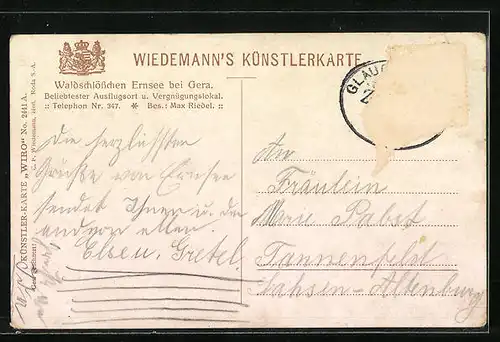 WIEDEMANN'S KÜNSTLERKARTE
Waldschlößchen Ernsee bei Gera.
Beliebtester Ausflugsort u. Vergnügungslokal.
:: Telephon Nr. 347. ✻ Bes.: Max Riedel. ::
KÜNSTLER-KARTE „WIRO" No. 2441 A.
GLAUC
Die herzlichsten
Grüsse von Ernsee
sendet Ihnen u. den
andern allen
Else u. Gretel.
An
Fräulein
Marie Pabst
Tannenfeld
Sachsen-Altenburg